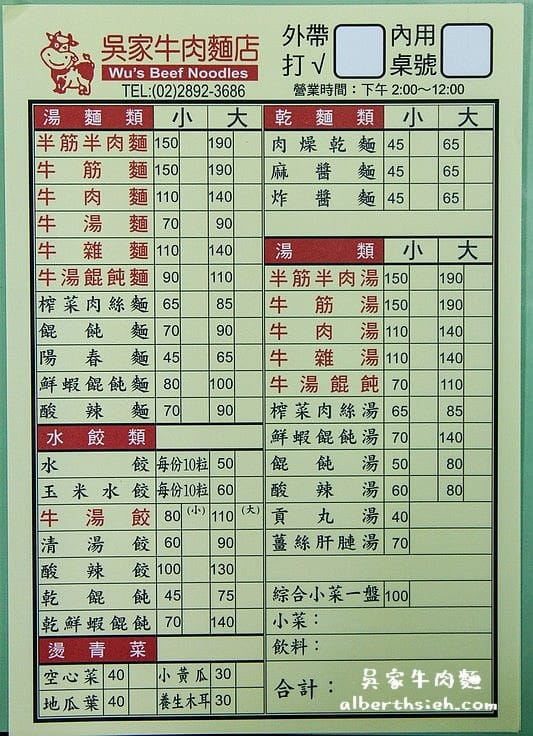 吳家牛肉麵店
Wu's Beef Noodles
TEL:(02)2892-3686
外帶 打√
內用 桌號
營業時間：下午 2:00～12:00
湯麵類 小 大
半筋半肉麵 150 190
牛筋麵 150 190
牛肉麵 110 140
牛湯麵 70 90
牛雜麵 110 140
牛湯餛飩麵 90 110
榨菜肉絲麵 65 85
餛飩麵 70 90
陽春麵 45 65
鮮蝦餛飩麵 80 100
酸辣麵 70 90
水餃類
水餃 每份10粒 50
玉米水餃 每份10粒 60
牛湯餃 80 (小) 110 (大)
清湯餃 60 90
酸辣餃 100 130
乾餛飩 45 75
乾鮮蝦餛飩 70 140
燙青菜
空心菜 40 小黃瓜 30
地瓜葉 40 養生木耳 30
乾麵類 小 大
肉燥乾麵 45 65
麻醬麵 45 65
炸醬麵 45 65
湯類 小 大
半筋半肉湯 150 190
牛筋湯 150 190
牛肉湯 110 140
牛雜湯 110 140
牛湯餛飩 70 110
榨菜肉絲湯 65 85
鮮蝦餛飩湯 70 140
餛飩湯 50 80
酸辣湯 60 80
貢丸湯 40
薑絲肝腱湯 70
綜合小菜一盤 100
小菜：
飲料：
合計：
吳家牛肉麵
alberthsieh.com